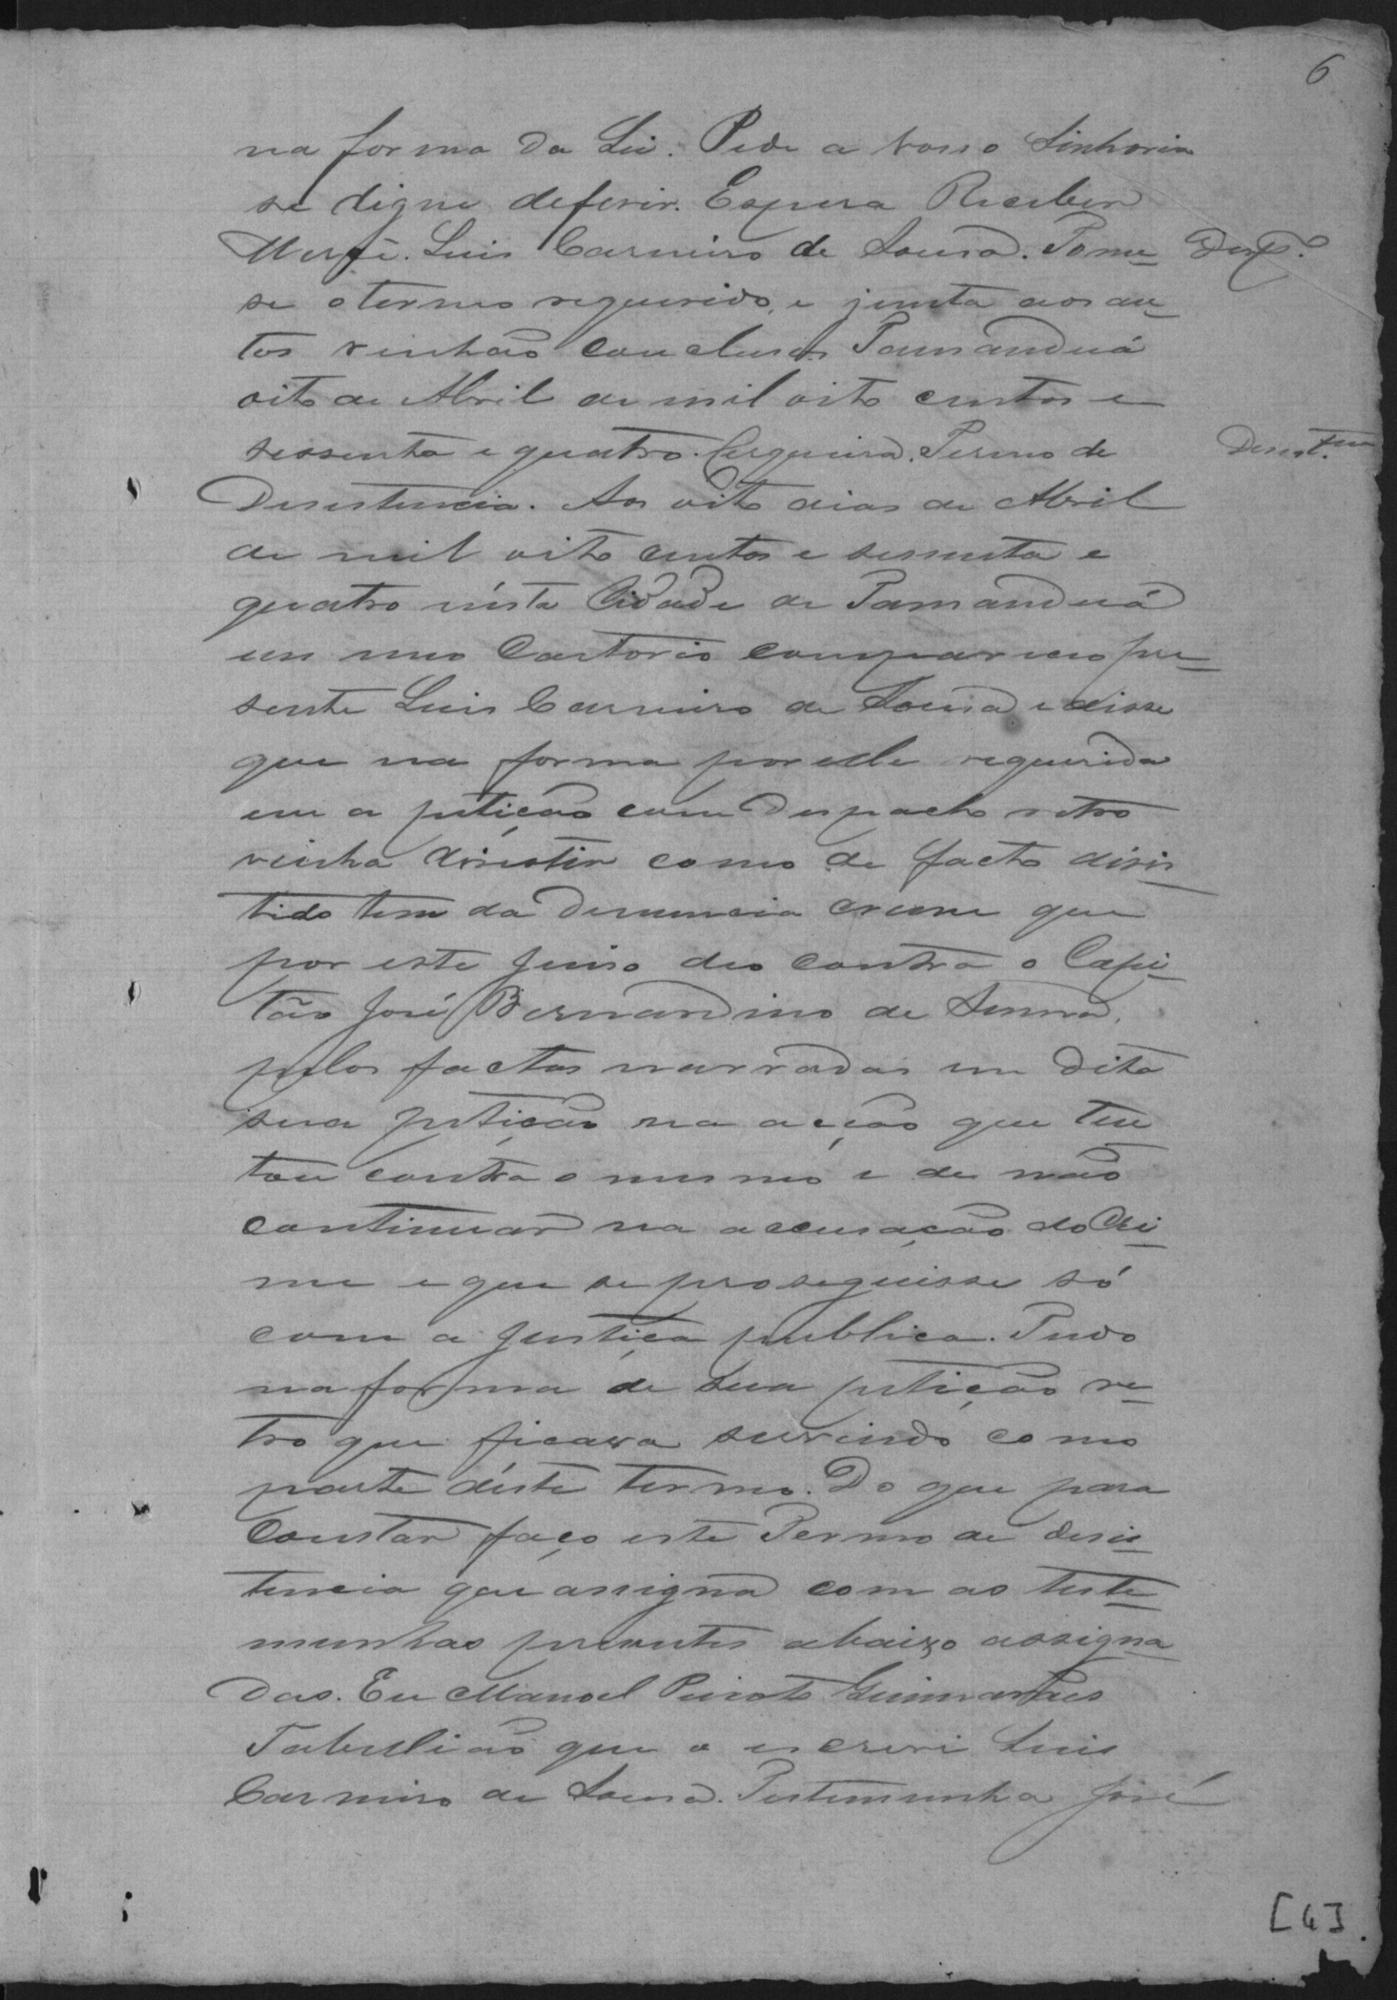 6
na forma da Lei. Pede a Vosso Sinhoria
se digne deferir. Espera Receber
Mercê. Luis Carneiro de Sousa. Tome Desp.º
se o termo requerido, e junta aos au
tos vinhão conclusos Tamanduá
oito de Abril de mil oito centos e
sessenta e quatro. Cerqueira. Termo de
Desistencia. Aos oito dias de Abril
de mil oito centos e sessenta e
quatro nésta Cidade de Tamanduá
em meo Cartorio compareceo pre
sente Luis Carneiro de Sousa e disse
que na forma por elle requerida
em a petição com Despacho retro
vinha disistir como de facto disis
tido tem da Denuncia crime que
por este Juiso deo contra o Capi
tão José Bernardino de Senna,
pelos factos narrados em dita
sua petição na acção que ten
tou contra o mesmo e de não
continuar na accusação do Cri
me e que se proseguisse só
com a Justiça publica. Tudo
na forma de sua petição re
tro que ficara servindo como
parte déste termo. Do que para
Constar faço este Termo de desis
tencia que assigna com as teste
munhas presentes abaixo assigna
das. Eu Manoel Peixoto Guimarães
Tabellião que o escrevi Luis
Carneiro de Sousa. Testemunha José
[4]